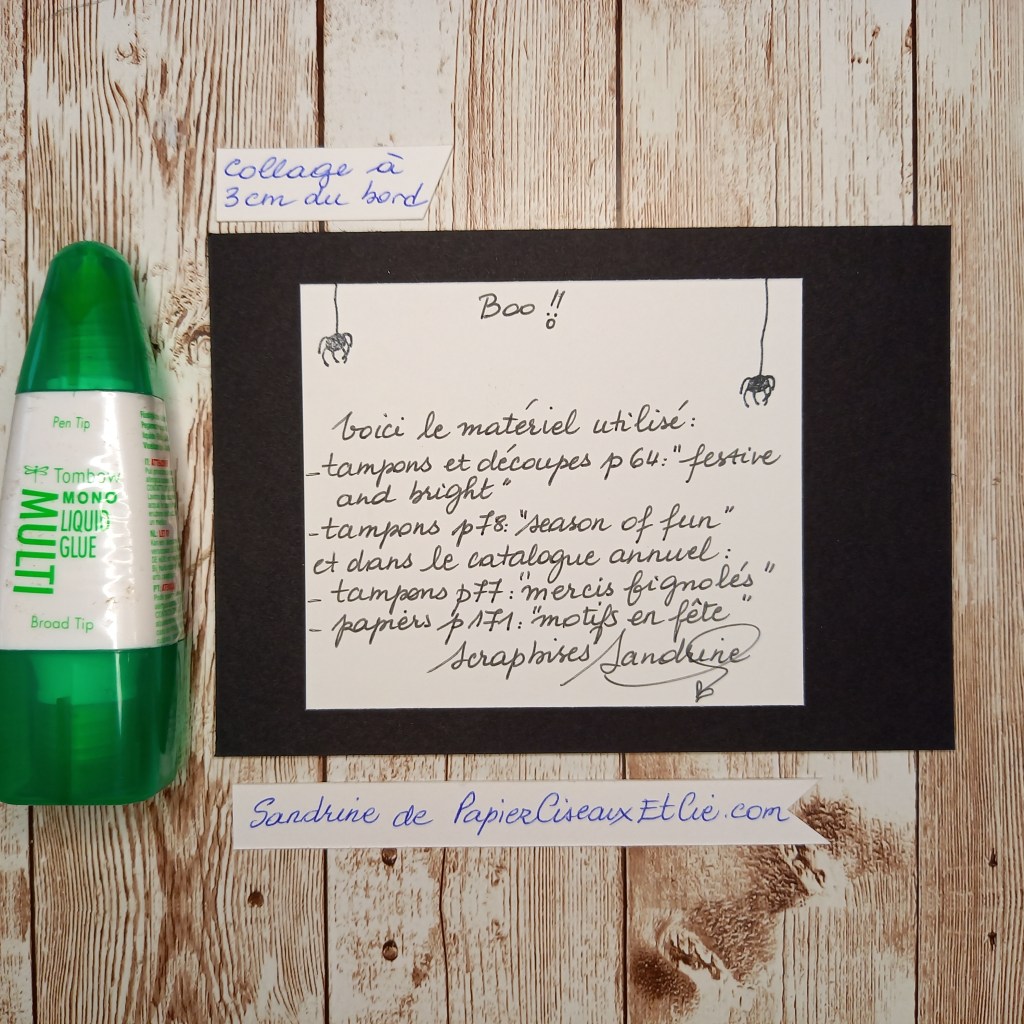 collage à
3cm du bord
Pen Tip
Tombow
MONO
LIQUID
GLUE
MULTI
Broad Tip
Boo !!
Voici le matériel utilisé:
- tampons et découpes p 64: "festive
and bright"
- tampons p78: "season of fun"
et dans le catalogue annuel :
- tampons p77 : "mercis fignolés"
- papiers p 171: "motifs en fête"
Scrapbises Sandrine
Sandrine de PapierCiseauxEtCie.com